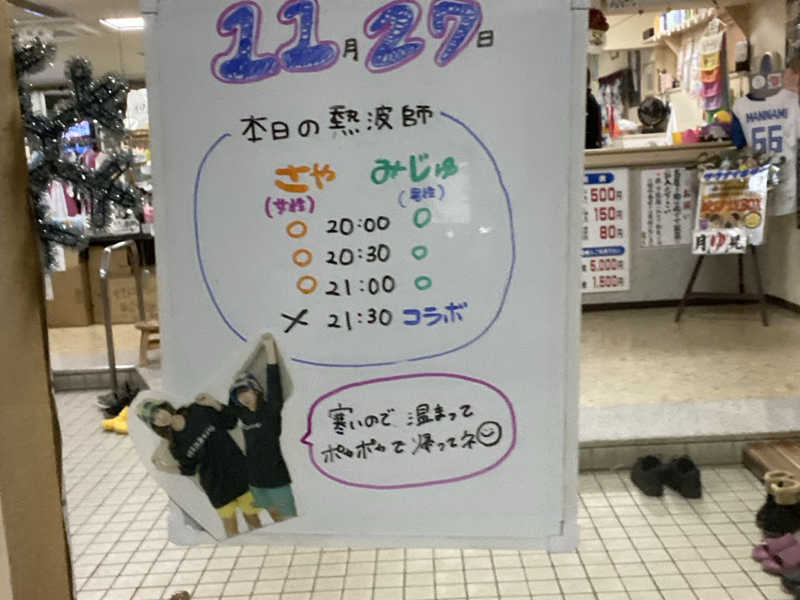 11月27日
本日の熱波師
さや みじゅ
(女性) (男性)
○ 20:00 ○
○ 20:30 ○
○ 21:00 ○
× 21:30 コラボ
寒いので、温まって
ポカポカで帰ってネ
500円
150円
80円
5,000円
1,500円
HANNAMI
66
月ゆ見